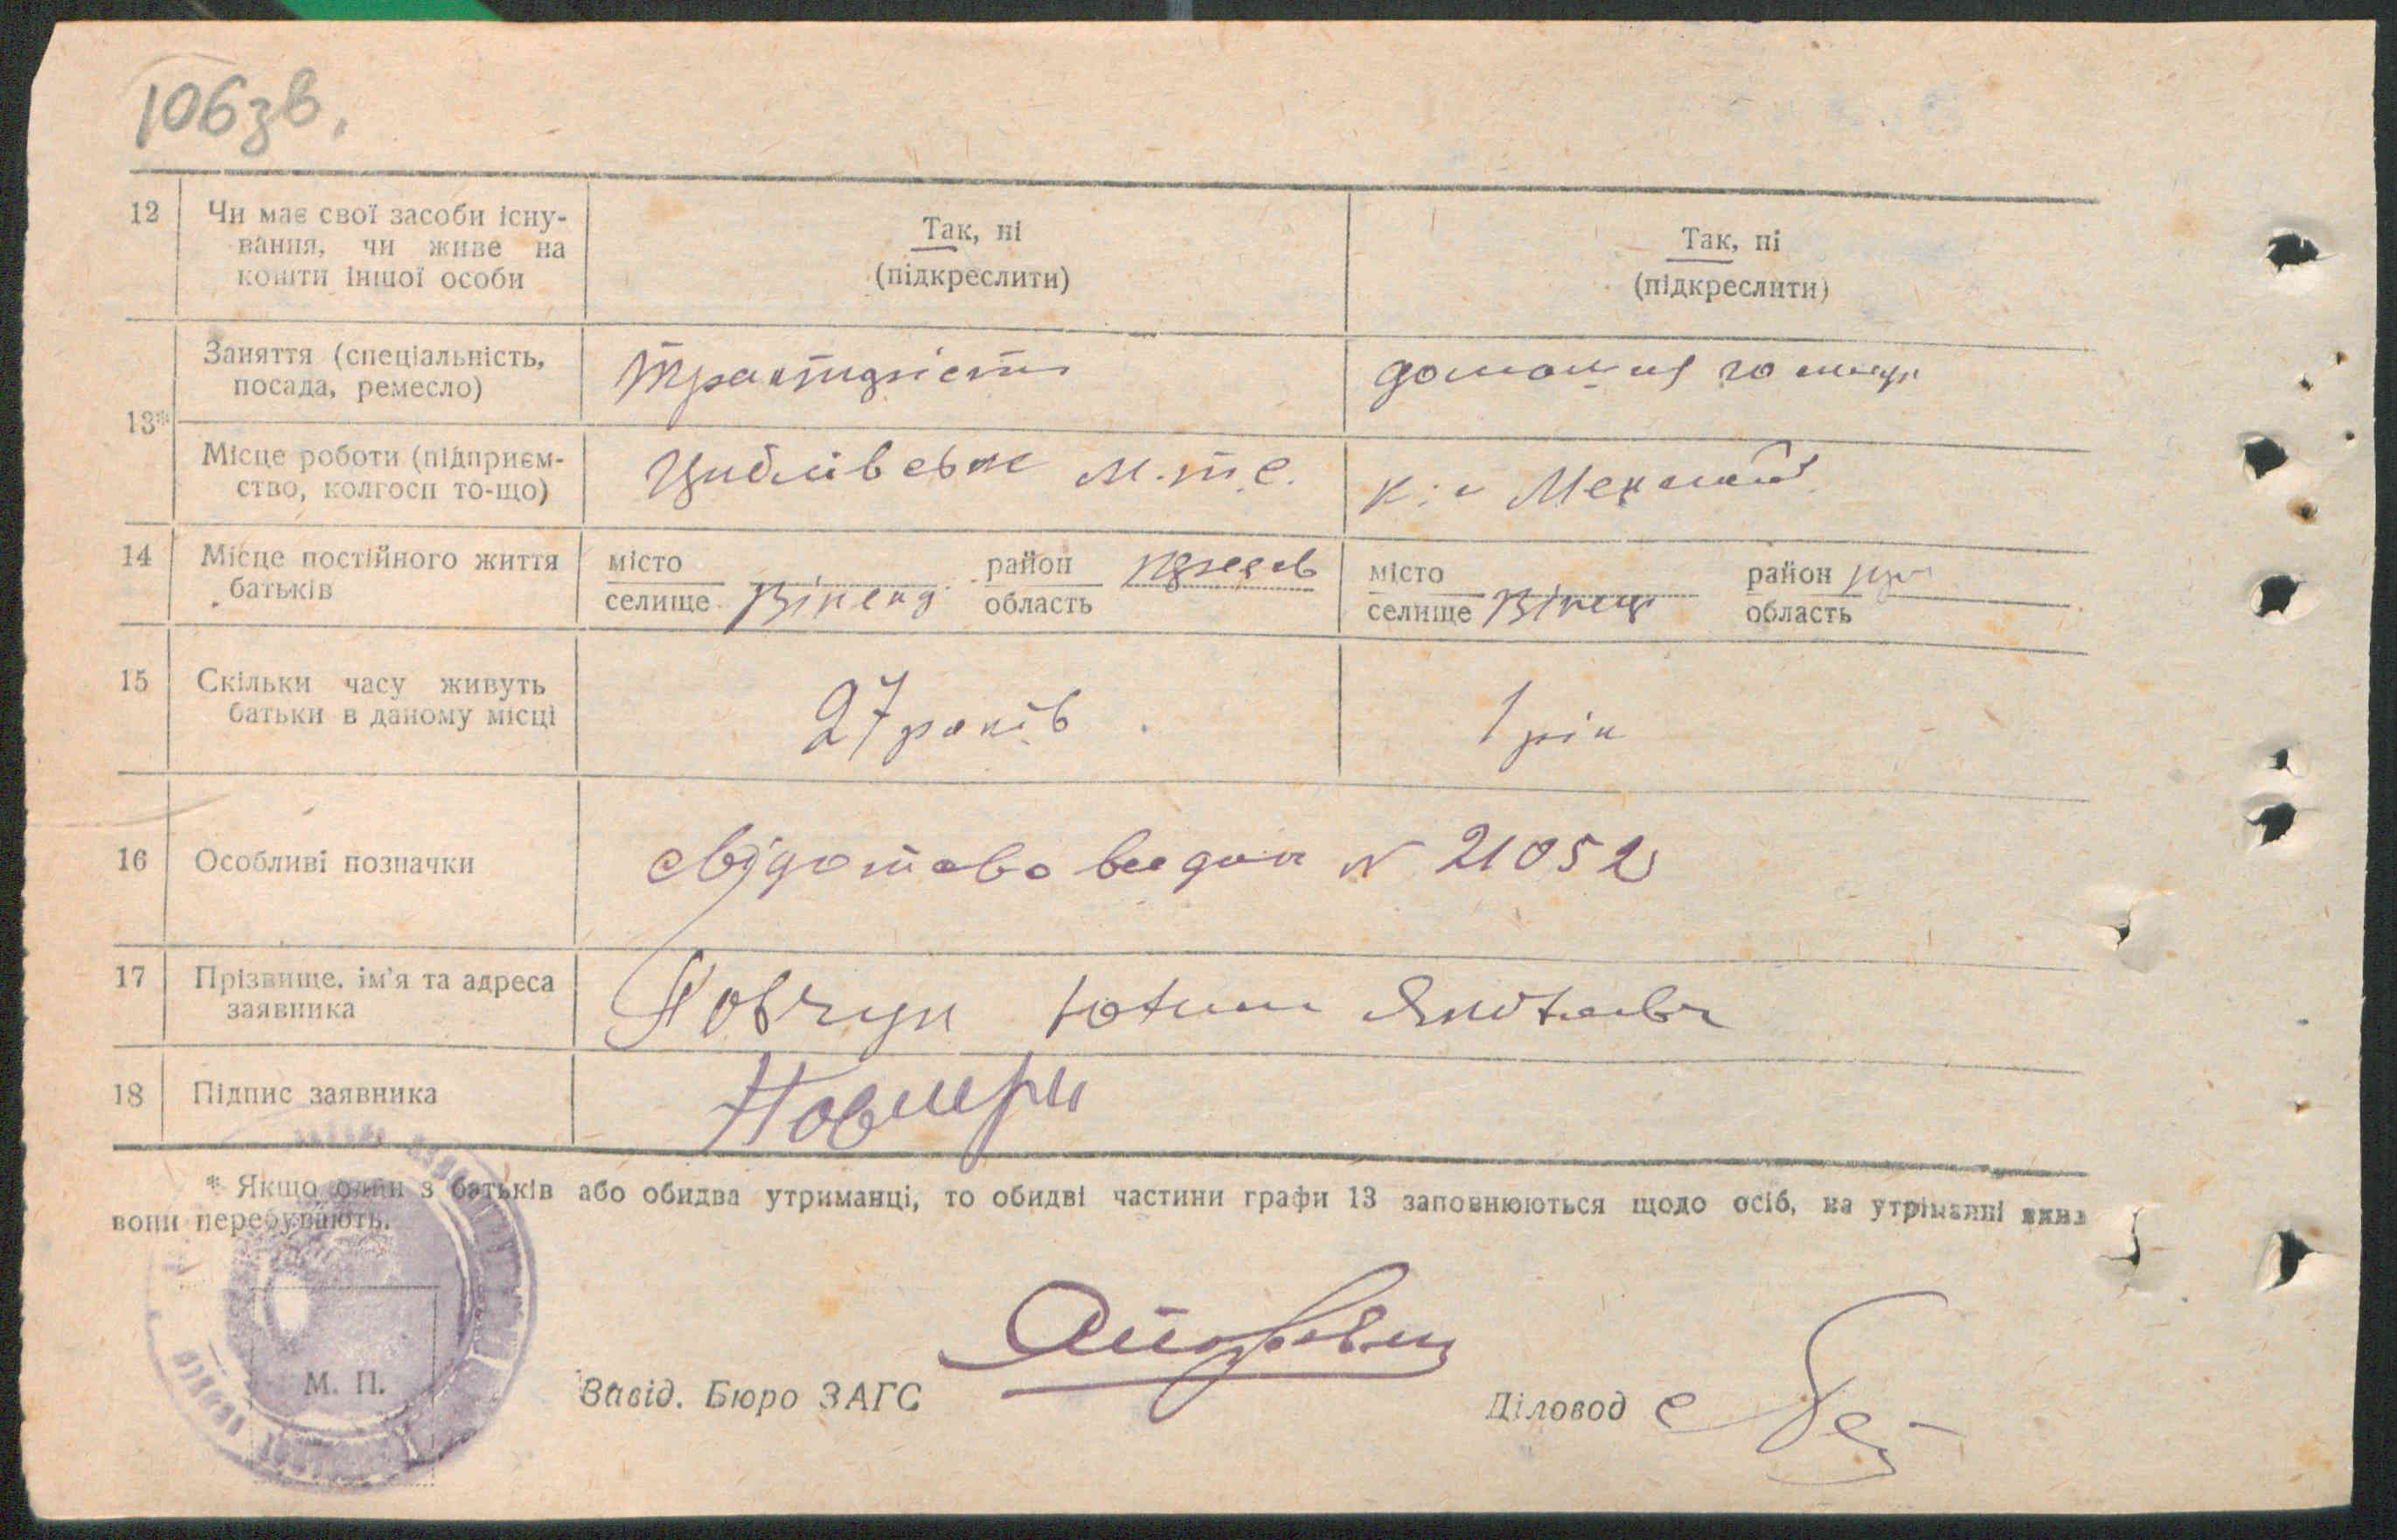 106зв.
12
Чи має свої засоби існу-
вання, чи живе на
кошти іншої особи
Так, ні
(підкреслити)
Так, ні
(підкреслити)
13*
Заняття (спеціальність,
посада, ремесло)
тракторист
домашня
Місце роботи (підприєм-
ство, колгосп то-що)
Циблівське м.т.с.
14
Місце постійного життя
батьків
місто
селище
район
область
місто
селище
район
область
15
Скільки часу живуть
батьки в даному місці
27 років
1 рік
16
Особливі позначки
свідотство видано № 21052
17
Прізвище, ім'я та адреса
заявника
18
Підпис заявника
* Якщо один з батьків або обидва утриманці, то обидві частини графи 13 заповнюються щодо осіб, на утріманні яких
вони перебувають.
М. П.
Завід. Бюро ЗАГС
Діловод